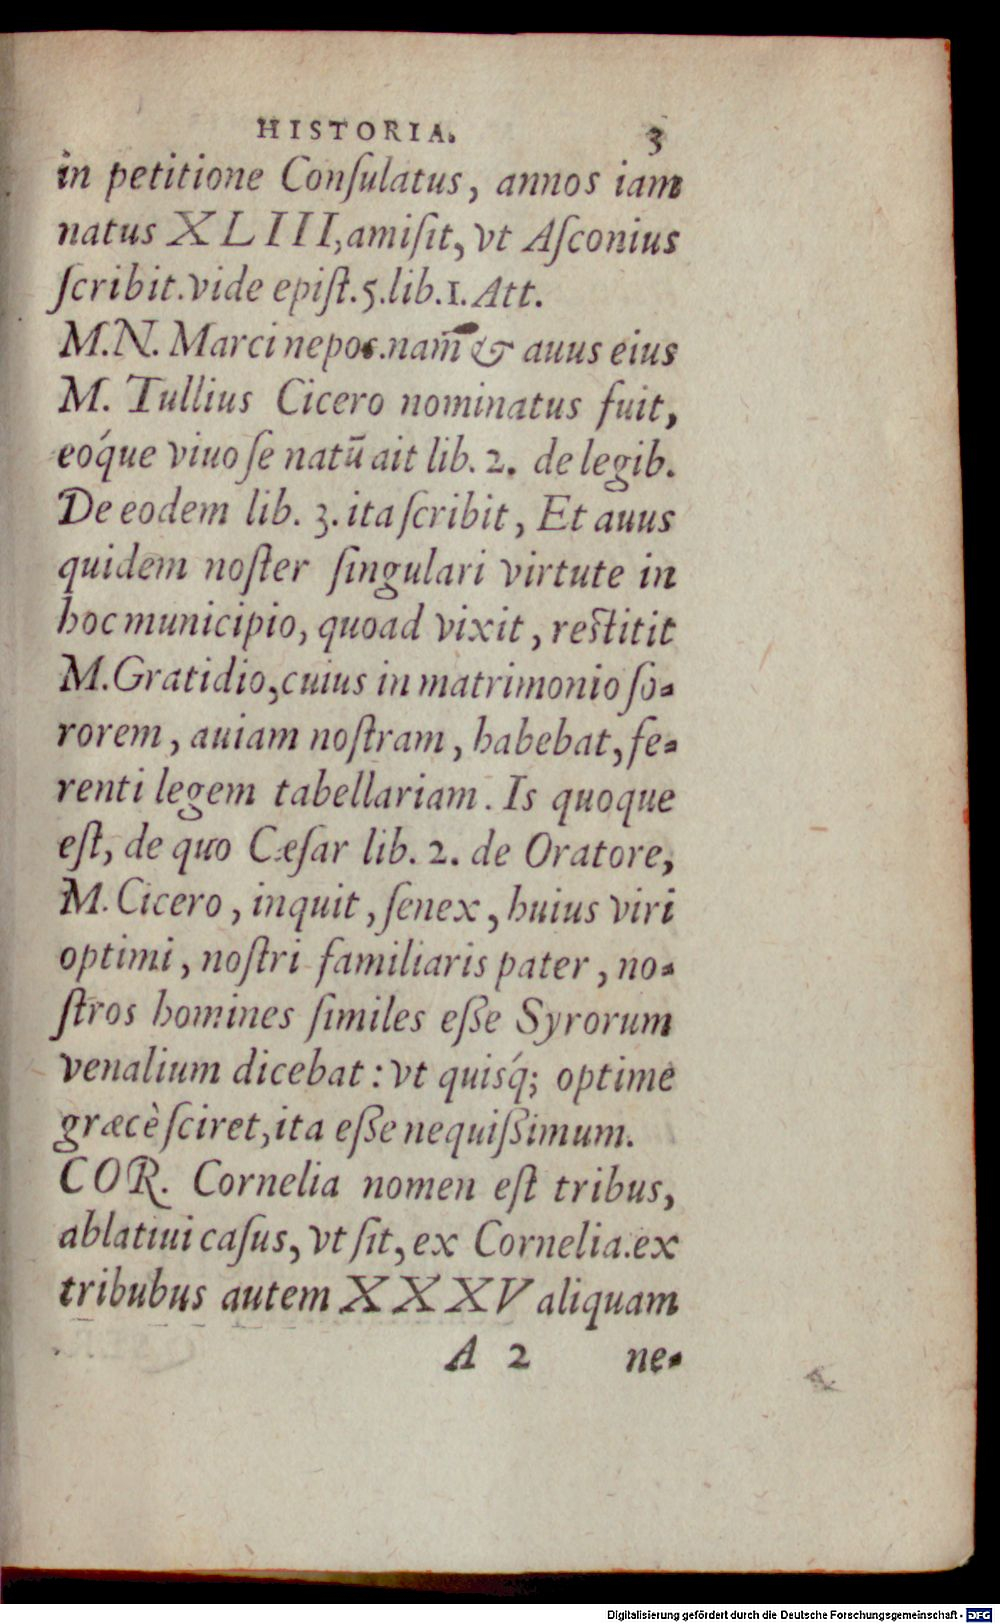 HISTORIA. 3
in petitione Conſulatus, annos iam
natus XLIII, amiſit, vt Aſconius
ſcribit. vide epiſt. 5. lib. 1. Att.
M. N. Marci nepos. nam̄ & auus eius
M. Tullius Cicero nominatus fuit,
eóque viuo ſe natū ait lib. 2. de legib.
De eodem lib. 3. ita ſcribit, Et auus
quidem noſter ſingulari virtute in
hoc municipio, quoad vixit, reſtitit
M. Gratidio, cuius in matrimonio ſo-
rorem, auiam noſtram, habebat, fe-
renti legem tabellariam. Is quoque
eſt, de quo Cæſar lib. 2. de Oratore,
M. Cicero, inquit, ſenex, huius viri
optimi, noſtri familiaris pater, no-
ſtros homines ſimiles eſſe Syrorum
venalium dicebat: vt quisq́; optime
græcè ſciret, ita eſſe nequiſſimum.
COR. Cornelia nomen eſt tribus,
ablatiui caſus, vt ſit, ex Cornelia. ex
tribubus autem XXXV aliquam
A 2 ne-
Digitalisierung gefördert durch die Deutsche Forschungsgemeinschaft - DFG